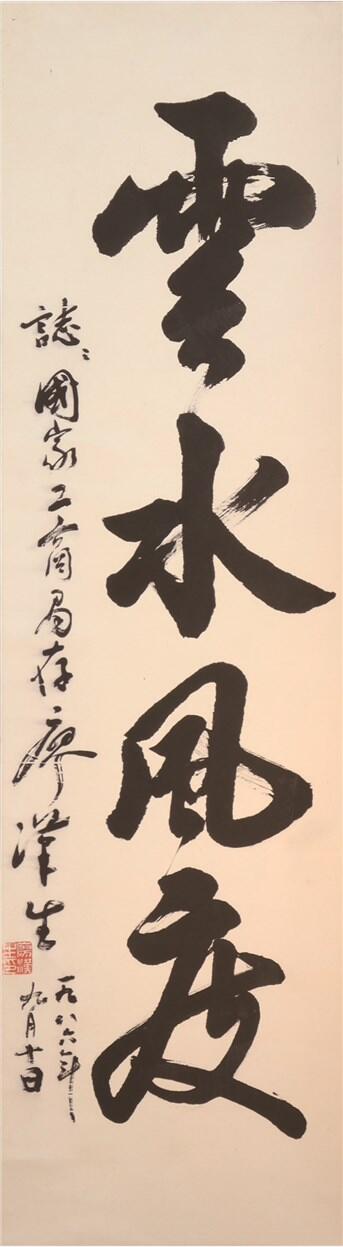 雲水風度
誌國家工商局存廖漢生
一九八六年
九月十日